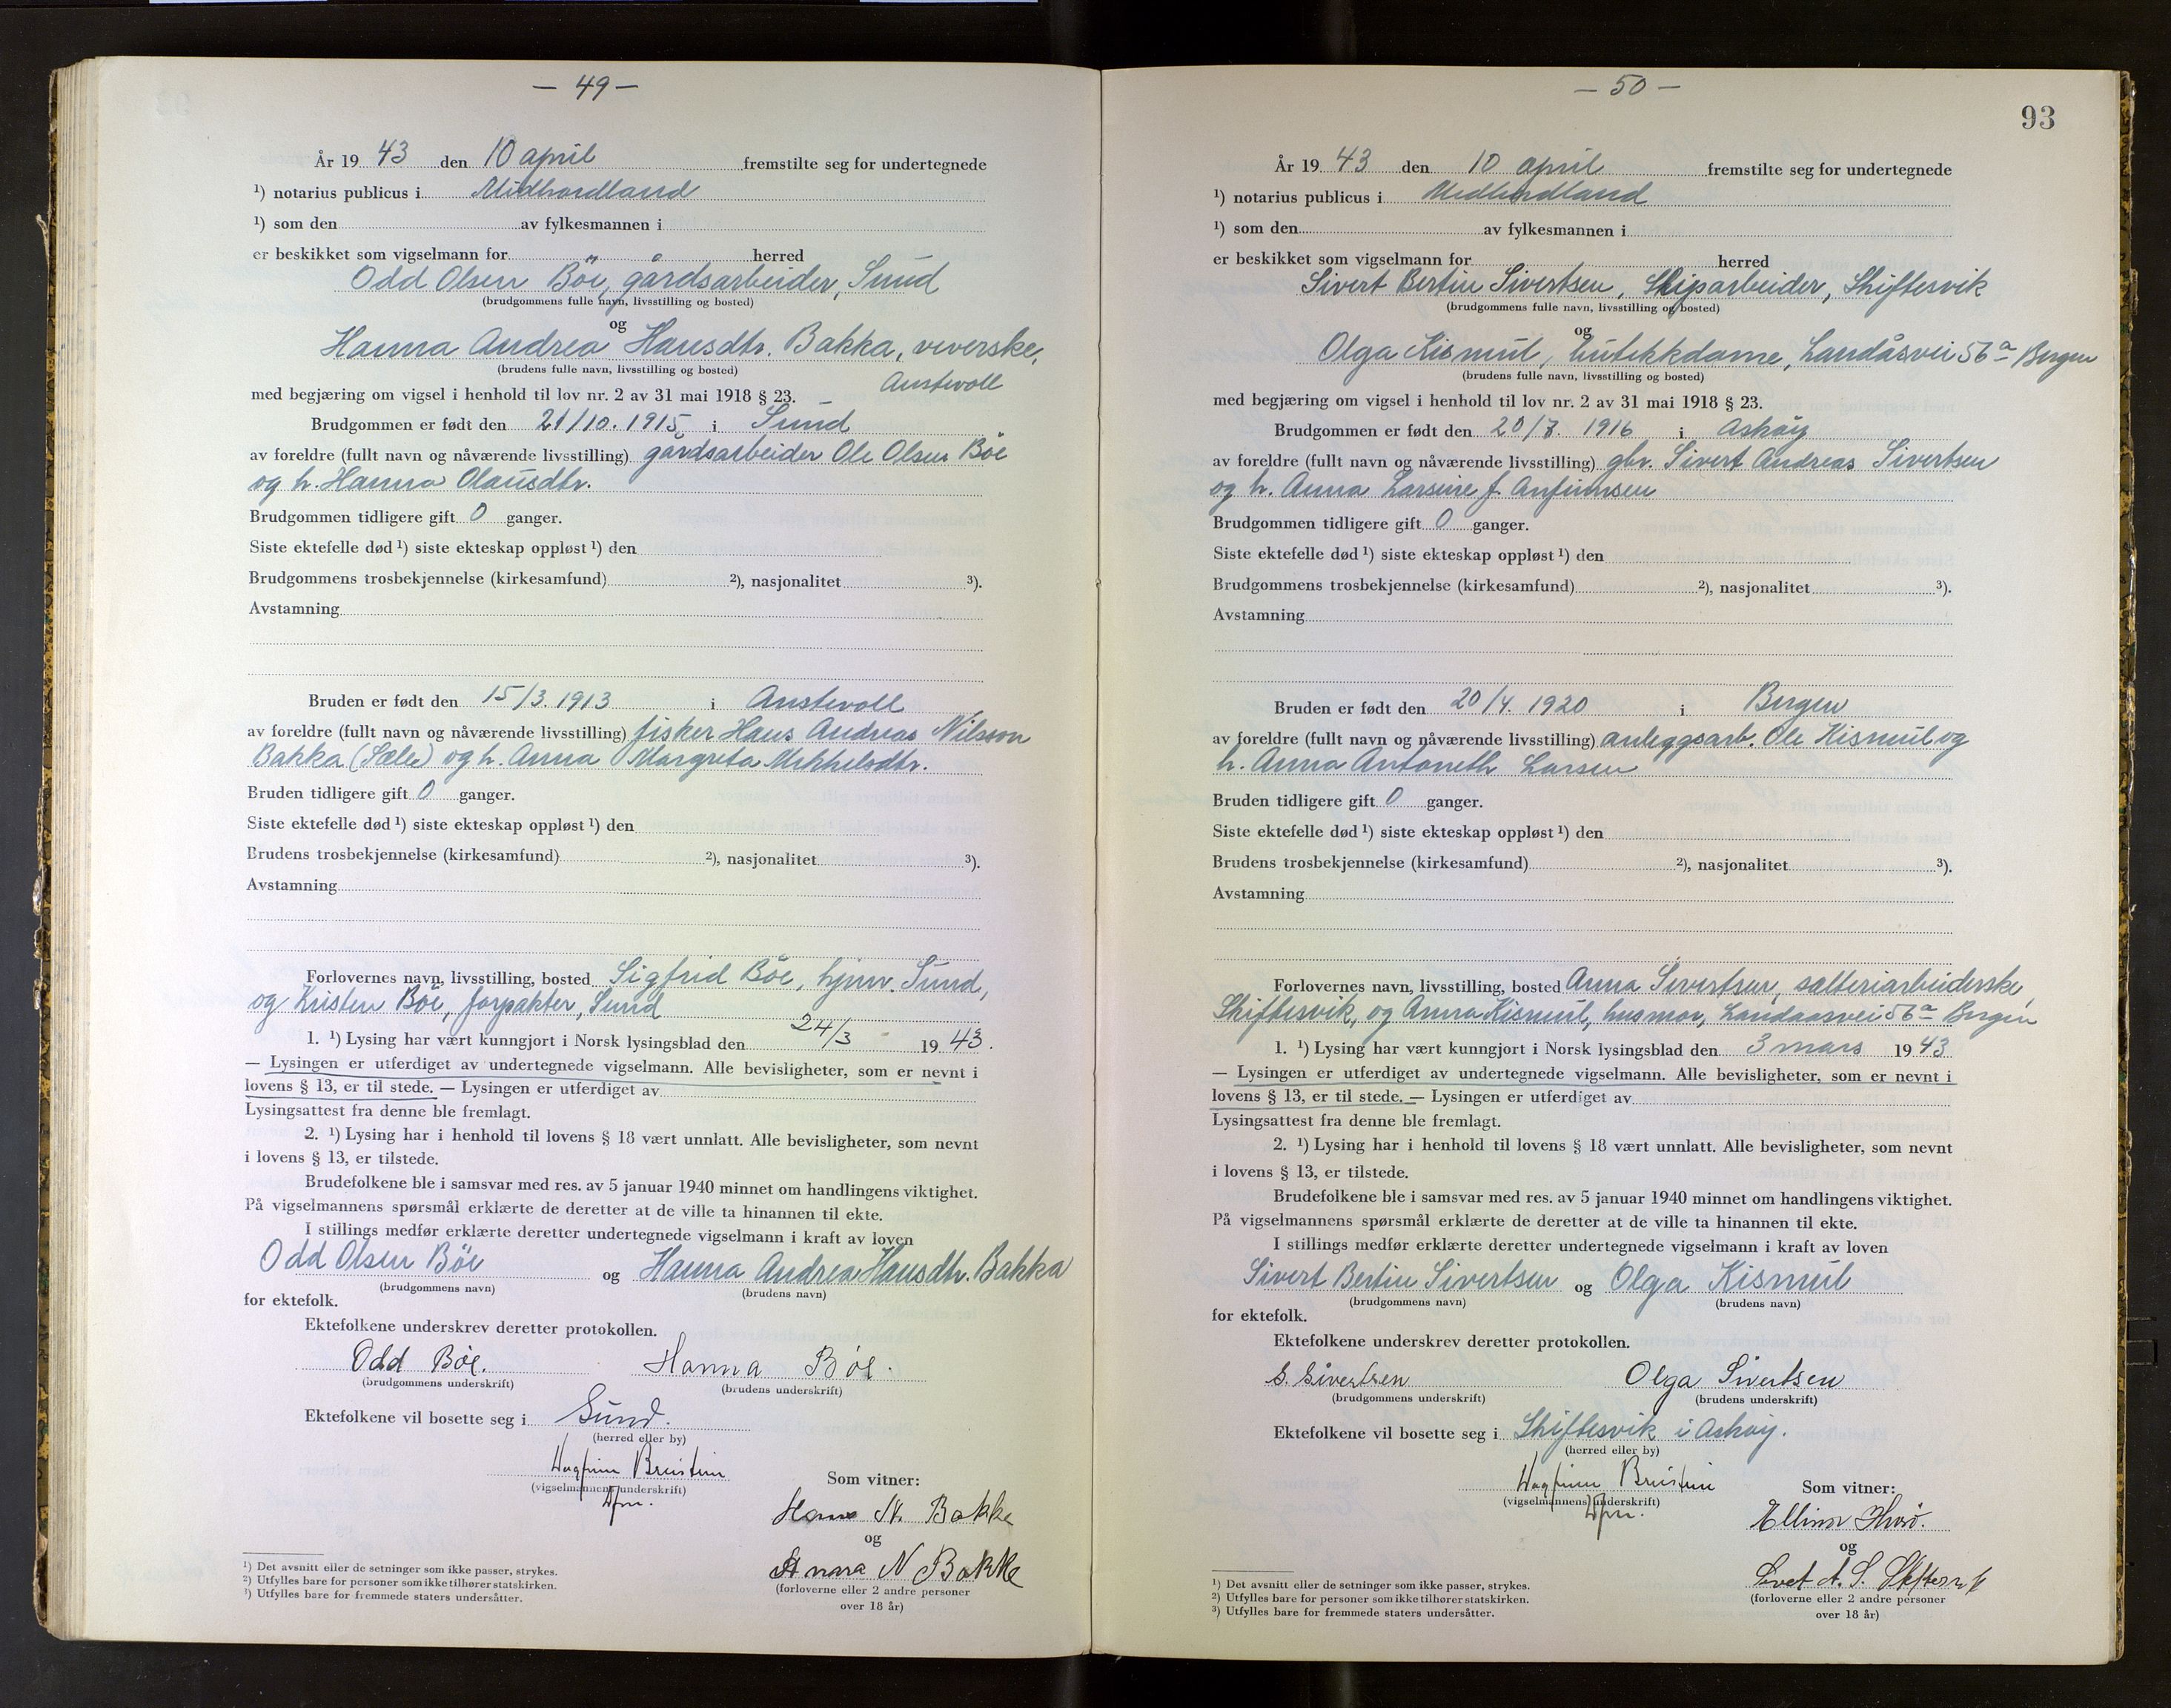 — 49 —
År 19 43 den 10 april fremstilte seg for undertegnede
¹) notarius publicus i Midhordland
¹) som den av fylkesmannen i
er beskikket som vigselmann for herred
Odd Olsen Böe, gårdsarbeider, Sund
(brudgommens fulle navn, livsstilling og bosted)
og
Hanna Andrea Hansdtr. Bakka, veverske,
(brudens fulle navn, livsstilling og bosted)
Austevoll
med begjæring om vigsel i henhold til lov nr. 2 av 31 mai 1918 § 23.
Brudgommen er født den 21/10. 1915 i Sund
av foreldre (fullt navn og nåværende livsstilling) gårdsarbeider Ole Olsen Böe
og h. Hanna Olausdtr.
Brudgommen tidligere gift 0 ganger.
Siste ektefelle død ¹) siste ekteskap oppløst ¹) den
Brudgommens trosbekjennelse (kirkesamfund) ²), nasjonalitet ³).
Avstamning
Bruden er født den 15/3. 1913 i Austevoll
av foreldre (fullt navn og nåværende livsstilling) fisker Hans Andreas Nilsson
Bakka (Sæle) og h. Anna Margreta Mikkelsdtr.
Bruden tidligere gift 0 ganger.
Siste ektefelle død ¹) siste ekteskap oppløst ¹) den
Brudens trosbekjennelse (kirkesamfund) ²), nasjonalitet ³).
Avstamning
Forlovernes navn, livsstilling, bosted Sigfrid Böe, hjmv. Sund,
og Kristen Böe, forpakter, Sund
1. ¹) Lysing har vært kunngjort i Norsk lysingsblad den 24/3 19 43.
— Lysingen er utferdiget av undertegnede vigselmann. Alle bevisligheter, som er nevnt i
lovens § 13, er til stede. — Lysingen er utferdiget av
Lysingsattest fra denne ble fremlagt.
2. ¹) Lysing har i henhold til lovens § 18 vært unnlatt. Alle bevisligheter, som nevnt
i lovens § 13, er tilstede.
Brudefolkene ble i samsvar med res. av 5 januar 1940 minnet om handlingens viktighet.
På vigselmannens spørsmål erklærte de deretter at de ville ta hinannen til ekte.
I stillings medfør erklærte deretter undertegnede vigselmann i kraft av loven
Odd Olsen Böe og Hanna Andrea Hansdtr. Bakka
(brudgommens navn) (brudens navn)
for ektefolk.
Ektefolkene underskrev deretter protokollen.
Odd Böe. Hanna Böe.
(brudgommens underskrift) (brudens underskrift)
Ektefolkene vil bosette seg i Sund.
(herred eller by)
Dagfinn Breistein
(vigselmannens underskrift)
Dfm.
Som vitner:
Hans N. Bakke
og
Anna N Bakke
(forloverne eller 2 andre personer
over 18 år)
¹) Det avsnitt eller de setninger som ikke passer, strykes.
²) Utfylles bare for personer som ikke tilhører statskirken.
³) Utfylles bare for fremmede staters undersåtter.
— 50 —
93
År 19 43 den 10 april fremstilte seg for undertegnede
¹) notarius publicus i Midhordland
¹) som den av fylkesmannen i
er beskikket som vigselmann for herred
Sivert Bertin Sivertsen, Skipsarbeider, Skiftesvik
(brudgommens fulle navn, livsstilling og bosted)
og
Olga Kismul, butikkdame, Landåsvei 56ª Bergen
(brudens fulle navn, livsstilling og bosted)
med begjæring om vigsel i henhold til lov nr. 2 av 31 mai 1918 § 23.
Brudgommen er født den 20/7. 1916 i Askøy
av foreldre (fullt navn og nåværende livsstilling) gbr. Sivert Andreas Sivertsen
og h. Anna Larsine f. Anfinnsen
Brudgommen tidligere gift 0 ganger.
Siste ektefelle død ¹) siste ekteskap oppløst ¹) den
Brudgommens trosbekjennelse (kirkesamfund) ²), nasjonalitet ³).
Avstamning
Bruden er født den 20/4. 1920 i Bergen
av foreldre (fullt navn og nåværende livsstilling) anleggsarb. Ole Kismul og
h. Anna Antoneth Larsen
Bruden tidligere gift 0 ganger.
Siste ektefelle død ¹) siste ekteskap oppløst ¹) den
Brudens trosbekjennelse (kirkesamfund) ²), nasjonalitet ³).
Avstamning
Forlovernes navn, livsstilling, bosted Anna Sivertsen, salteriarbeiderske,
Skiftesvik, og Anna Kismul, husmor, Landaasvei 56ª Bergen
1. ¹) Lysing har vært kunngjort i Norsk lysingsblad den 3 mars 19 43
— Lysingen er utferdiget av undertegnede vigselmann. Alle bevisligheter, som er nevnt i
lovens § 13, er til stede. — Lysingen er utferdiget av
Lysingsattest fra denne ble fremlagt.
2. ¹) Lysing har i henhold til lovens § 18 vært unnlatt. Alle bevisligheter, som nevnt
i lovens § 13, er tilstede.
Brudefolkene ble i samsvar med res. av 5 januar 1940 minnet om handlingens viktighet.
På vigselmannens spørsmål erklærte de deretter at de ville ta hinannen til ekte.
I stillings medfør erklærte deretter undertegnede vigselmann i kraft av loven
Sivert Bertin Sivertsen og Olga Kismul
(brudgommens navn) (brudens navn)
for ektefolk.
Ektefolkene underskrev deretter protokollen.
S. Sivertsen Olga Sivertsen
(brudgommens underskrift) (brudens underskrift)
Ektefolkene vil bosette seg i Skiftesvik i Askøy.
(herred eller by)
Dagfinn Breistein
(vigselmannens underskrift)
Dfm.
Som vitner:
Ellinor
og
A. S. Skiftesvik
(forloverne eller 2 andre personer
over 18 år)
¹) Det avsnitt eller de setninger som ikke passer, strykes.
²) Utfylles bare for personer som ikke tilhører statskirken.
³) Utfylles bare for fremmede staters undersåtter.